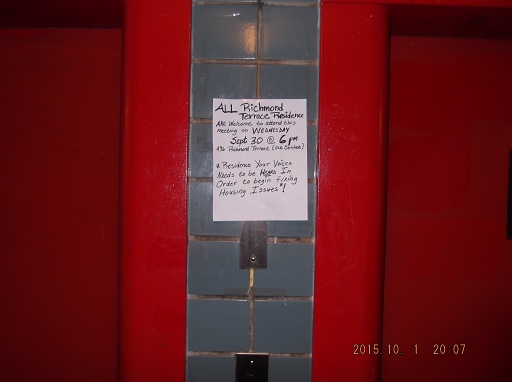 ALL Richmond
Terrace Residence
ARE Welcome to attend this
meeting on WEDNESDAY
Sept 30 @ 6 pm
71 Richmond Terrace (Old Center)
"Residence Your Voices
Needs to be Heard In
Order to begin fixing
Housing Issues"!
2015.10. 1 20:07